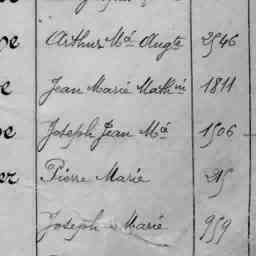 Arthur Má Augte 2546
Jean Marie Mathin 1811
Joseph Jean Má 1506
er Pierre Marie 215
Joseph Marie 959